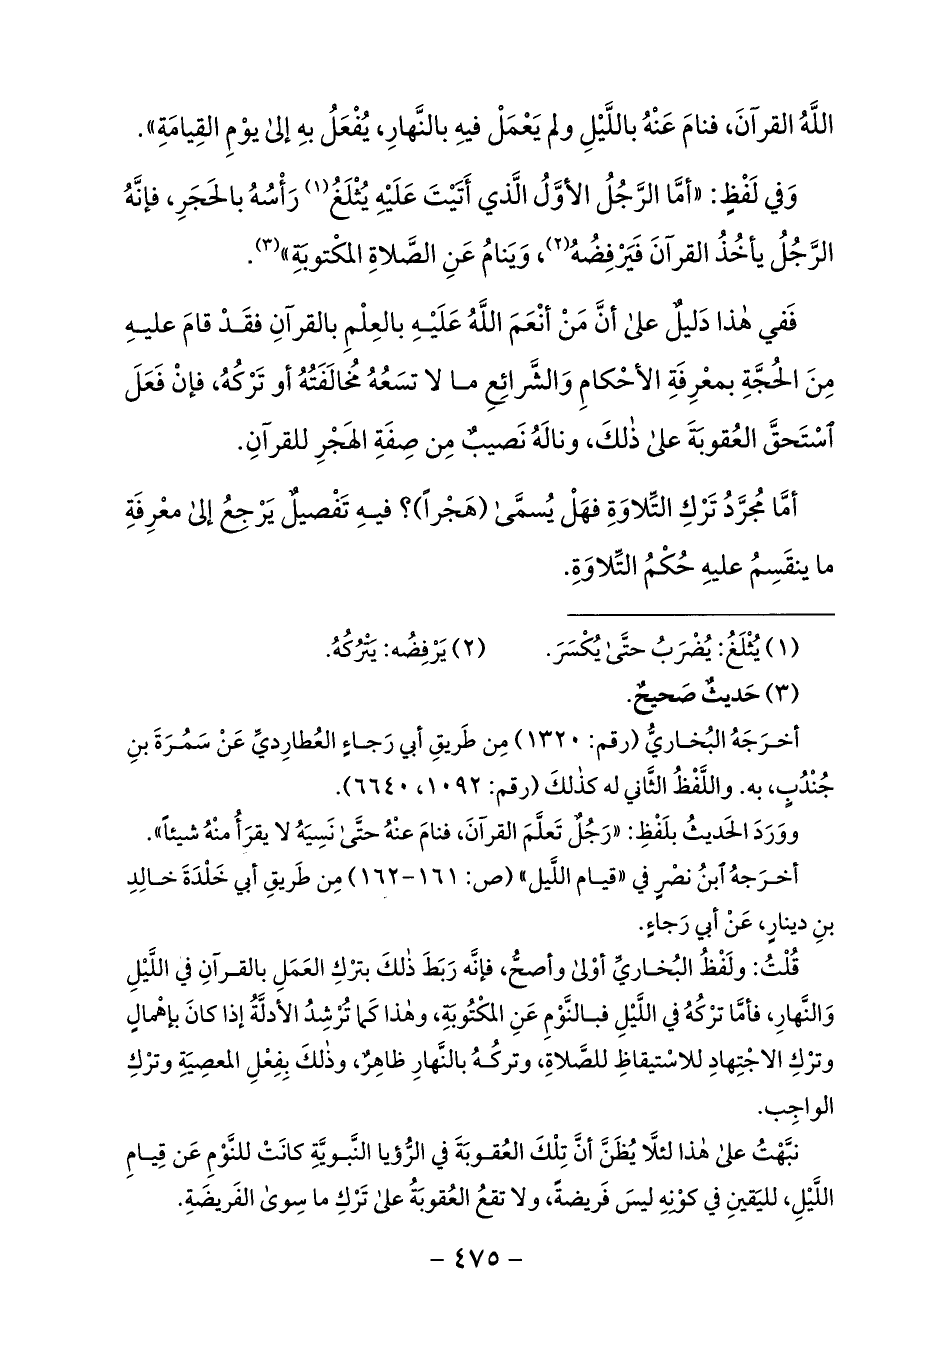 اللَّهُ القرآنَ، فنامَ عَنْهُ باللَّيْلِ ولم يَعْمَلْ فيهِ بالنَّهارِ، يُفْعَلُ بهِ إلىٰ يوْمِ القِيامَةِ».
وَفي لَفْظٍ: «أمَّا الرَّجُلُ الأوَّلُ الَّذي أَتَيْتَ عَلَيْهِ يُثْلَغُ(١) رَأْسُهُ بالحَجَرِ، فإنَّهُ
الرَّجُلُ يأخُذُ القرآنَ فَيَرْفِضُهُ(٢)، وَيَنامُ عَنِ الصَّلاةِ المكْتوبَةِ»(٣).
فَفي هٰذا دَليلٌ علىٰ أنَّ مَنْ أنْعَمَ اللَّهُ عَلَيْهِ بالعِلْمِ بالقرآنِ فقَدْ قامَ عليهِ
مِنَ الحُجَّةِ بمعْرِفَةِ الأحْكامِ وَالشَّرائعِ ما لا تسَعُهُ مُخالَفَتُهُ أو تَرْكُهُ، فإنْ فَعَلَ
ٱسْتَحقَّ العُقوبَةَ علىٰ ذٰلكَ، ونالَهُ نَصيبٌ مِن صِفَةِ الهَجْرِ للقرآنِ.
أمَّا مُجرَّدُ تَرْكِ التِّلاوَةِ فهَلْ يُسمَّىٰ (هَجْراً)؟ فيهِ تَفْصيلٌ يَرْجِعُ إلىٰ معْرِفَةِ
ما ينقَسِمُ عليهِ حُكْمُ التِّلاوَةِ.
(١) يُثْلَغُ: يُضْرَبُ حتَّىٰ يُكْسَرَ. (٢) يَرْفِضُه: يَتْرُكُهُ.
(٣) حَديثٌ صَحيحٌ.
أخرَجَهُ البُخاريُّ (رقم: ١٣٢٠) مِن طَريقِ أبي رَجاءٍ العُطارِديِّ عَنْ سَمُرَةَ بنِ
جُنْدُبٍ، به. واللَّفْظُ الثَّاني له كذٰلكَ (رقم: ١٠٩٢، ٦٦٤٠).
ووَرَدَ الحَديثُ بلَفْظِ: «رَجُلٌ تَعلَّمَ القرآنَ، فنامَ عنْهُ حتَّىٰ نَسِيَهُ لا يقرَأُ منْهُ شيئاً».
أخرَجهُ ٱبنُ نصْرٍ في «قيام اللَّيل» (ص: ١٦١-١٦٢) مِن طَريقِ أبي خَلْدَةَ خالِدِ
بنِ دينارٍ، عَنْ أبي رَجاءٍ.
قُلْتُ: ولَفْظُ البُخاريِّ أوْلىٰ وأصحُّ، فإنَّه رَبَطَ ذٰلكَ بتركِ العَمَلِ بالقرآنِ في اللَّيْلِ
وَالنَّهارِ، فأمَّا تركُهُ في اللَّيْلِ فبالنَّوْمِ عَنِ المكْتُوبَةِ، وهٰذا كما تُرْشِدُ الأدلَّةُ إذا كانَ بإهْمالٍ
وترْكِ الاجْتِهادِ للاسْتيقاظِ للصَّلاةِ، وتركُهُ بالنَّهارِ ظاهِرٌ، وذٰلكَ بِفِعْلِ المعصِيَةِ وترْكِ
الواجِبِ.
نبَّهْتُ علىٰ هٰذا لئلَّا يُظَنَّ أنَّ تِلْكَ العُقوبَةَ في الرُّؤيا النَّبويَّةِ كانَتْ للنَّوْمِ عَن قِيامِ
اللَّيْلِ، لليَقينِ في كوْنِهِ ليسَ فَريضةً، ولا تقعُ العُقوبَةُ علىٰ تَرْكِ ما سِوىٰ الفَريضَةِ.
– ٤٧٥ –